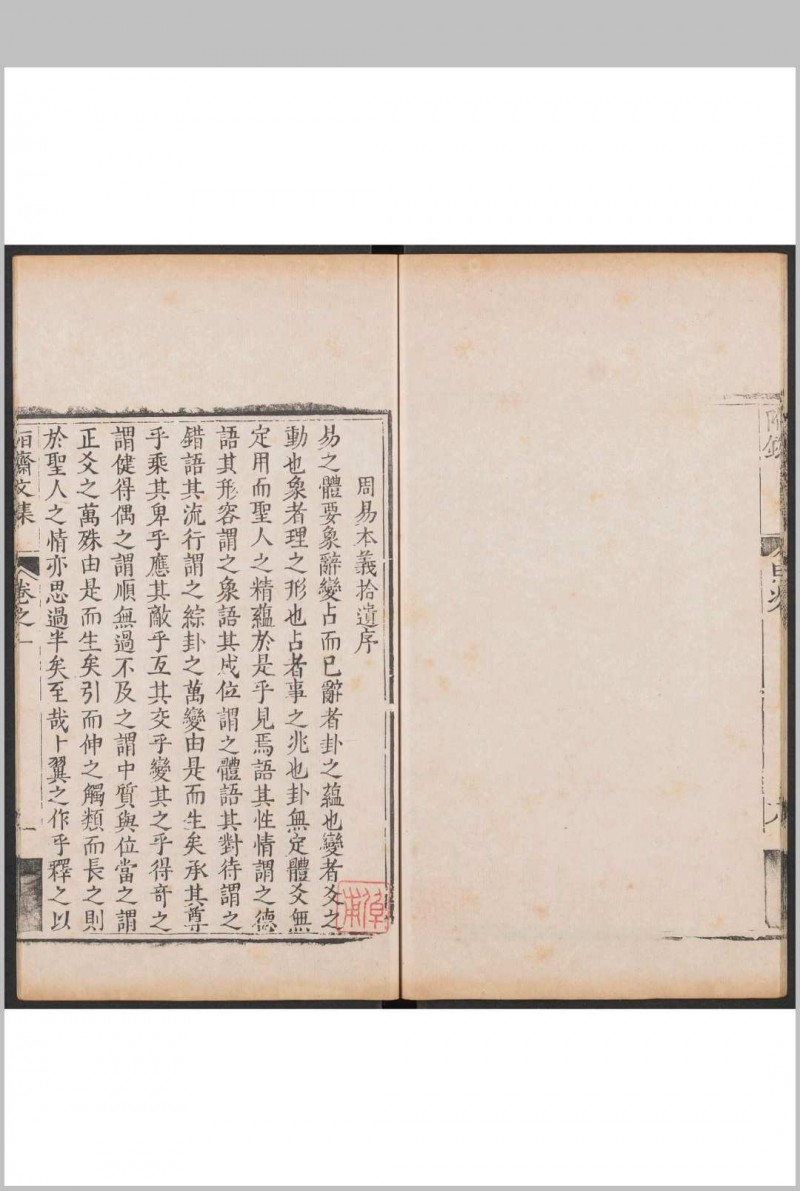 附錄
周易本義拾遺序
易之體要象辭變占而已辭者卦之蘊也變者爻之
動也象者理之形也占者事之兆也卦無定體爻無
定用而聖人之精蘊於是乎見焉語其性情謂之德
語其形容謂之象語其成位謂之體語其對待謂之
錯語其流行謂之綜卦之萬變由是而生矣承其尊
乎乘其卑乎應其敵乎互其交乎變其之乎得奇之
謂健得偶之謂順無過不及之謂中質與位當之謂
正爻之萬殊由是而生矣引而伸之觸類而長之則
於聖人之情亦思過半矣至哉十翼之作乎釋之以
齋文集 卷之一 一